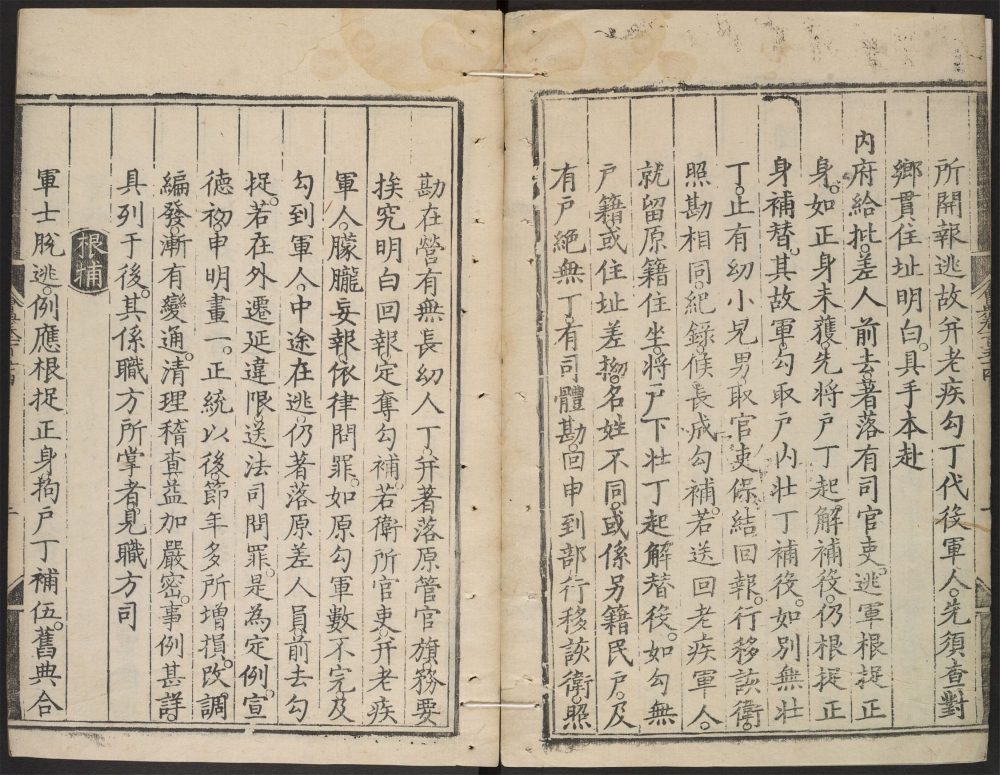 所開報逃故并老疾勾丁代役軍人。先須查對
鄉貫住址明白。具手本赴
內府給批。差人前去著落有司官吏。逃軍根捉正
身。如正身未獲。先將戶丁起解補役。仍根捉正
身補替。其故軍。勾取戶內壯丁補役。如別無壯
丁。止有幼小兒男。取官吏保結回報。行移該衛。
照勘相同。紀錄候長成勾補。若送回老疾軍人。
就留原籍住坐。將戶下壯丁起解替役。如勾無
戶籍或住址差拗。名姓不同。或係另籍民戶。及
有戶絕無丁。有司體勘。回申到部。行移該衛照
勘在營有無長幼人丁。并著落原管官旗務要
挨究明白回報。定奪勾補。若衛所官吏。并老疾
軍人。朦朧妄報。依律問罪。如原勾軍數不完。及
勾到軍人。中途在逃。仍著落原差人員。前去勾
捉。若在外遷延違限。送法司問罪。是為定例。宣
德初。申明畫一。正統以後。節年多所增損。改調
編發。漸有變通。清理稽查。益加嚴密。事例甚詳。
具列于後。其係職方所掌者。見職方司
根捕
軍士脫逃。例應根捉正身。拘戶丁補伍。舊典合